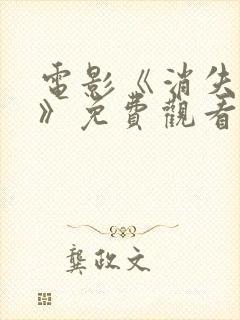 電影《消失
》免費觀看
龔政文